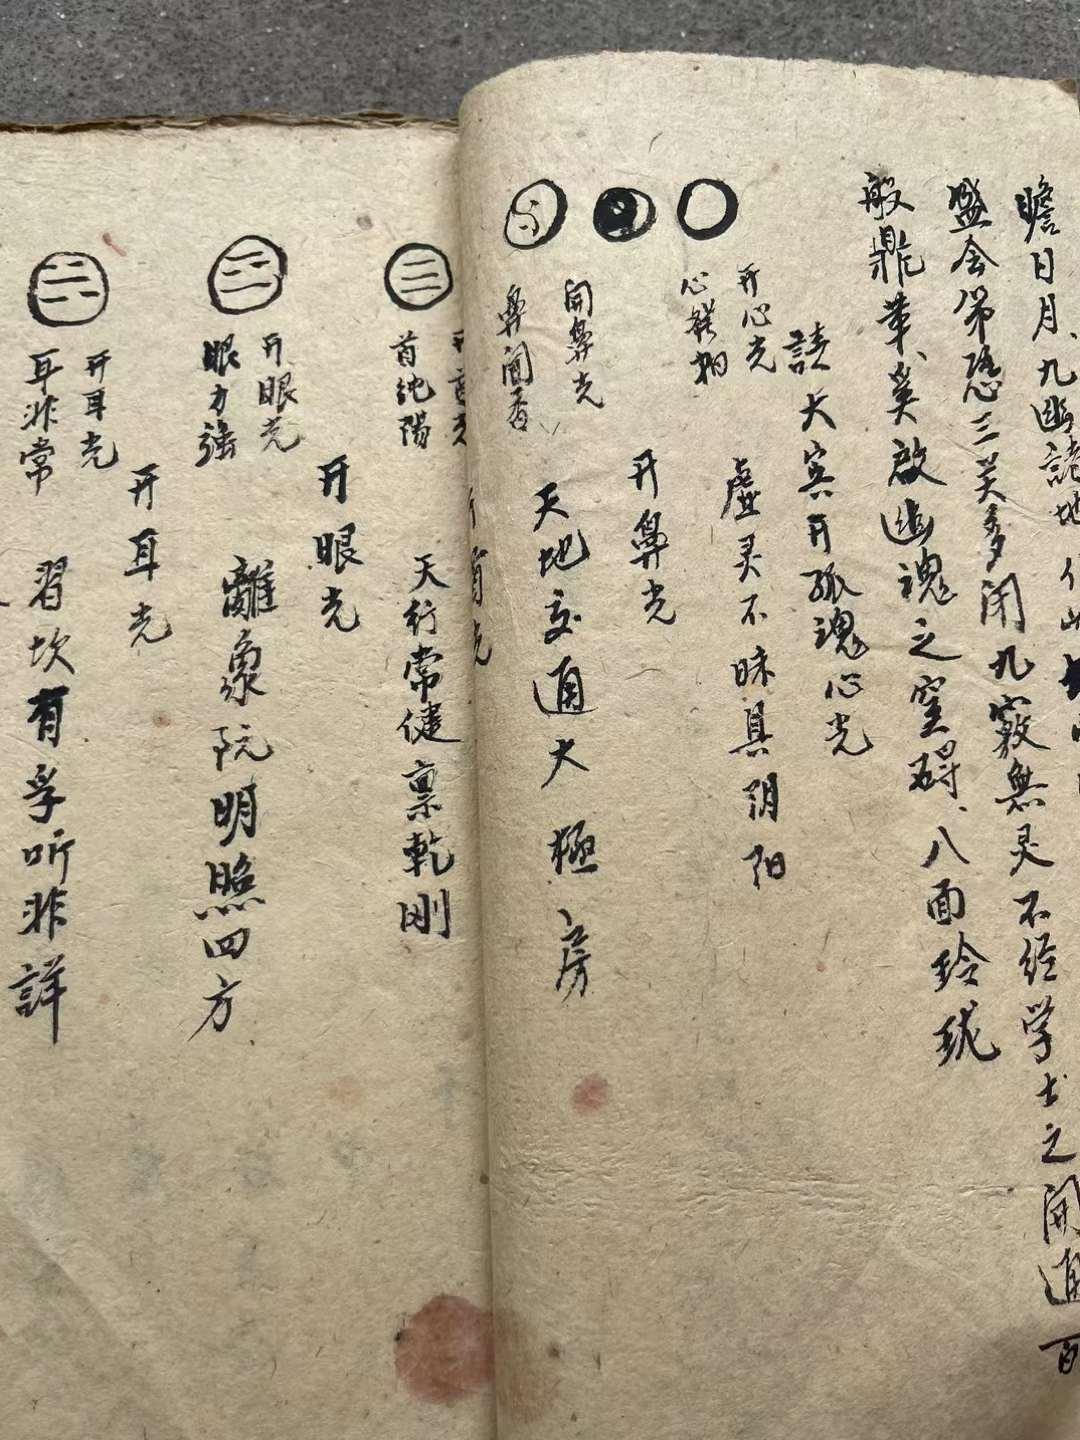 瞻日月、九幽諸地
盛会第恐三关多闭九窍無灵不经学士之開通百
般鼎革、奚啟幽魂之窒碍、八面玲珑
請大宾开孤魂心光
开心光
心
虚灵不昧具阴阳
开鼻光
開鼻光
鼻闻香
天地交通大極房
首光
首纯陽
天行常健禀乾剛
开眼光
开眼光
眼力強
離象阮明照四方
开耳光
开耳光
耳非常
習坎有孚听非詳